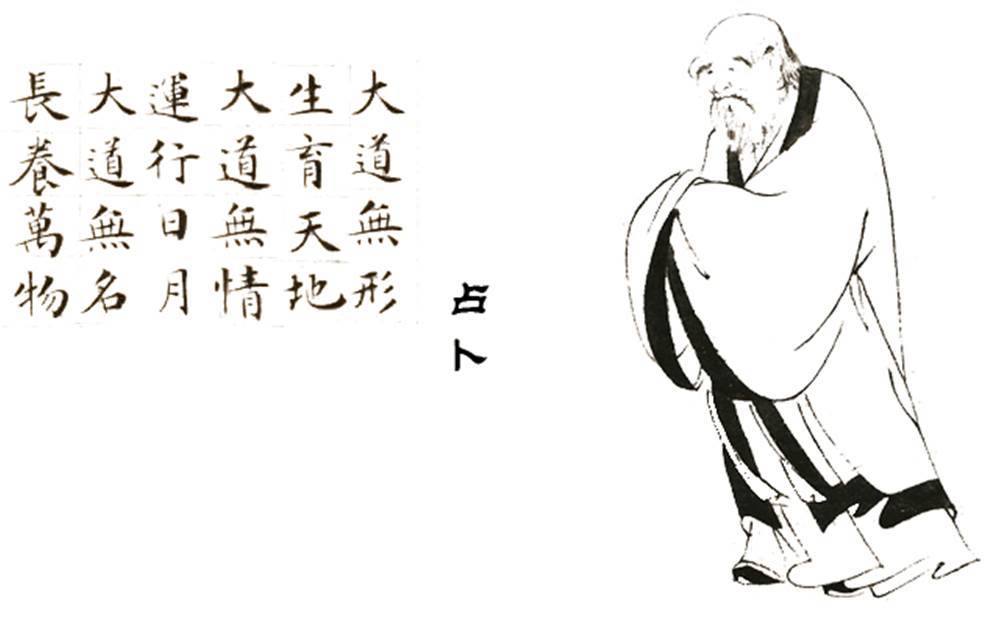 大道無形
生育天地
大道無情
運行日月
大道無名
長養萬物
占卜